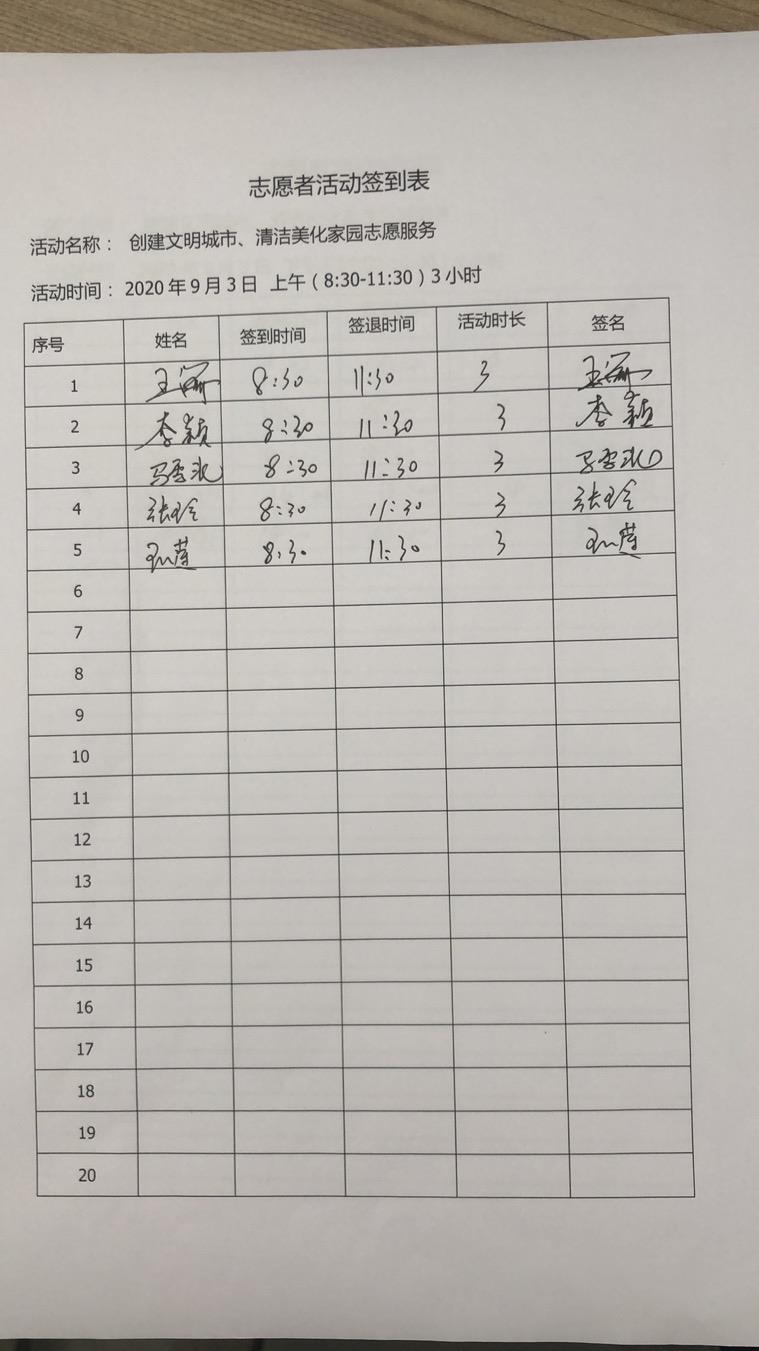 志愿者活动签到表
活动名称： 创建文明城市、清洁美化家园志愿服务
活动时间：2020年9月3日 上午（8:30-11:30）3小时
序号 姓名 签到时间 签退时间 活动时长 签名
1 王 8:30 11:30 3 王
2 李颖 8:30 11:30 3 李颖
3 马雪冰 8:30 11:30 3 马雪冰
4 张玲 8:30 11:30 3 张玲
5 8:30 11:30 3
6
7
8
9
10
11
12
13
14
15
16
17
18
19
20